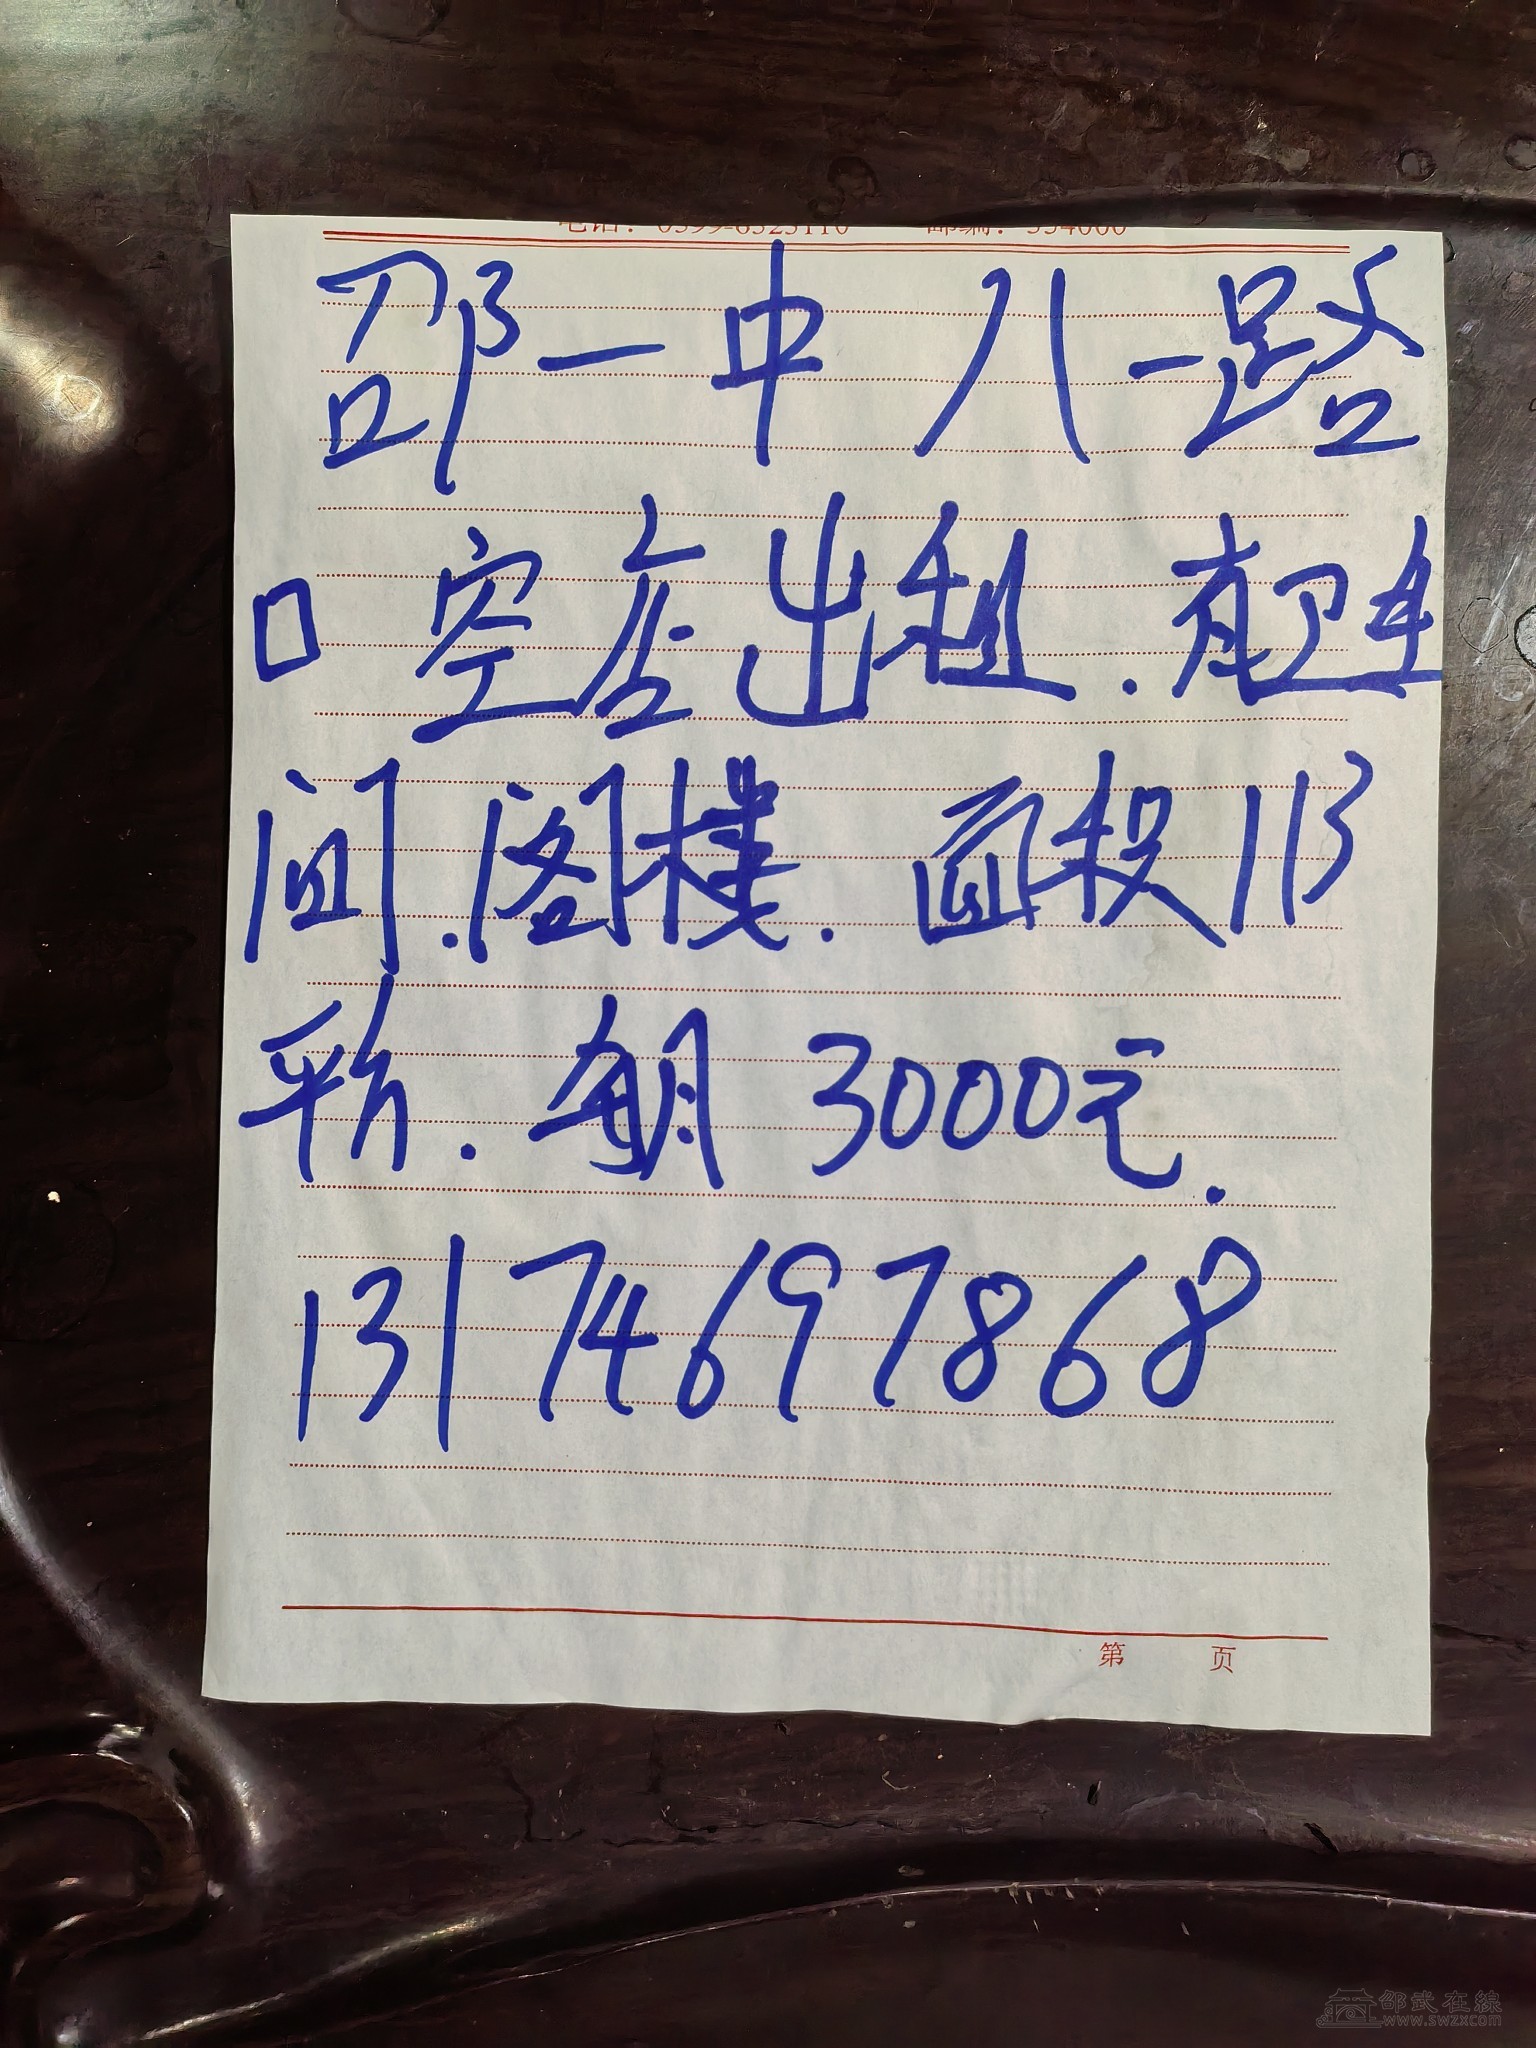 电话：0599-6323110 邮编：354000
邵一中八一路
口空店出租.有卫生
间.阁楼.面积113
平方.每月3000元.
13174697868
第 页
邵武在線
www.swzx.com